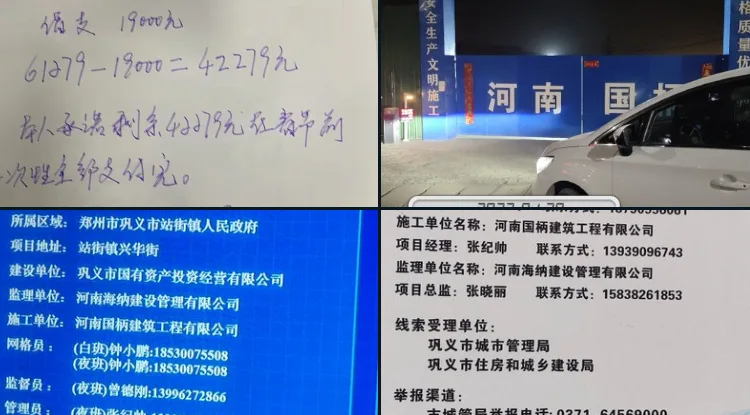 借支 19000元
61279-19000=42279元
本人承诺剩余42279元在春节前
一次性全部支付完。
安全生产文明施工
河南国
格质量优
所属区域： 郑州市巩义市站街镇人民政府
项目地址： 站街镇兴华街
建设单位： 巩义市国有资产投资经营有限公司
监理单位： 河南海纳建设管理有限公司
施工单位： 河南国柄建筑工程有限公司
网格员： (白班)钟小鹏:18530075508
(夜班)钟小鹏:18530075508
监督员： (夜班)曾德刚:13996272866
管理员：
施工单位名称：河南国柄建筑工程有限公司
项目经理：张纪帅 联系方式：13939096743
监理单位名称：河南海纳建设管理有限公司
项目总监：张晓丽 联系方式：15838261853
线索受理单位：
巩义市城市管理局
巩义市住房和城乡建设局
举报渠道：
市城管局举报电话：0371-64569000